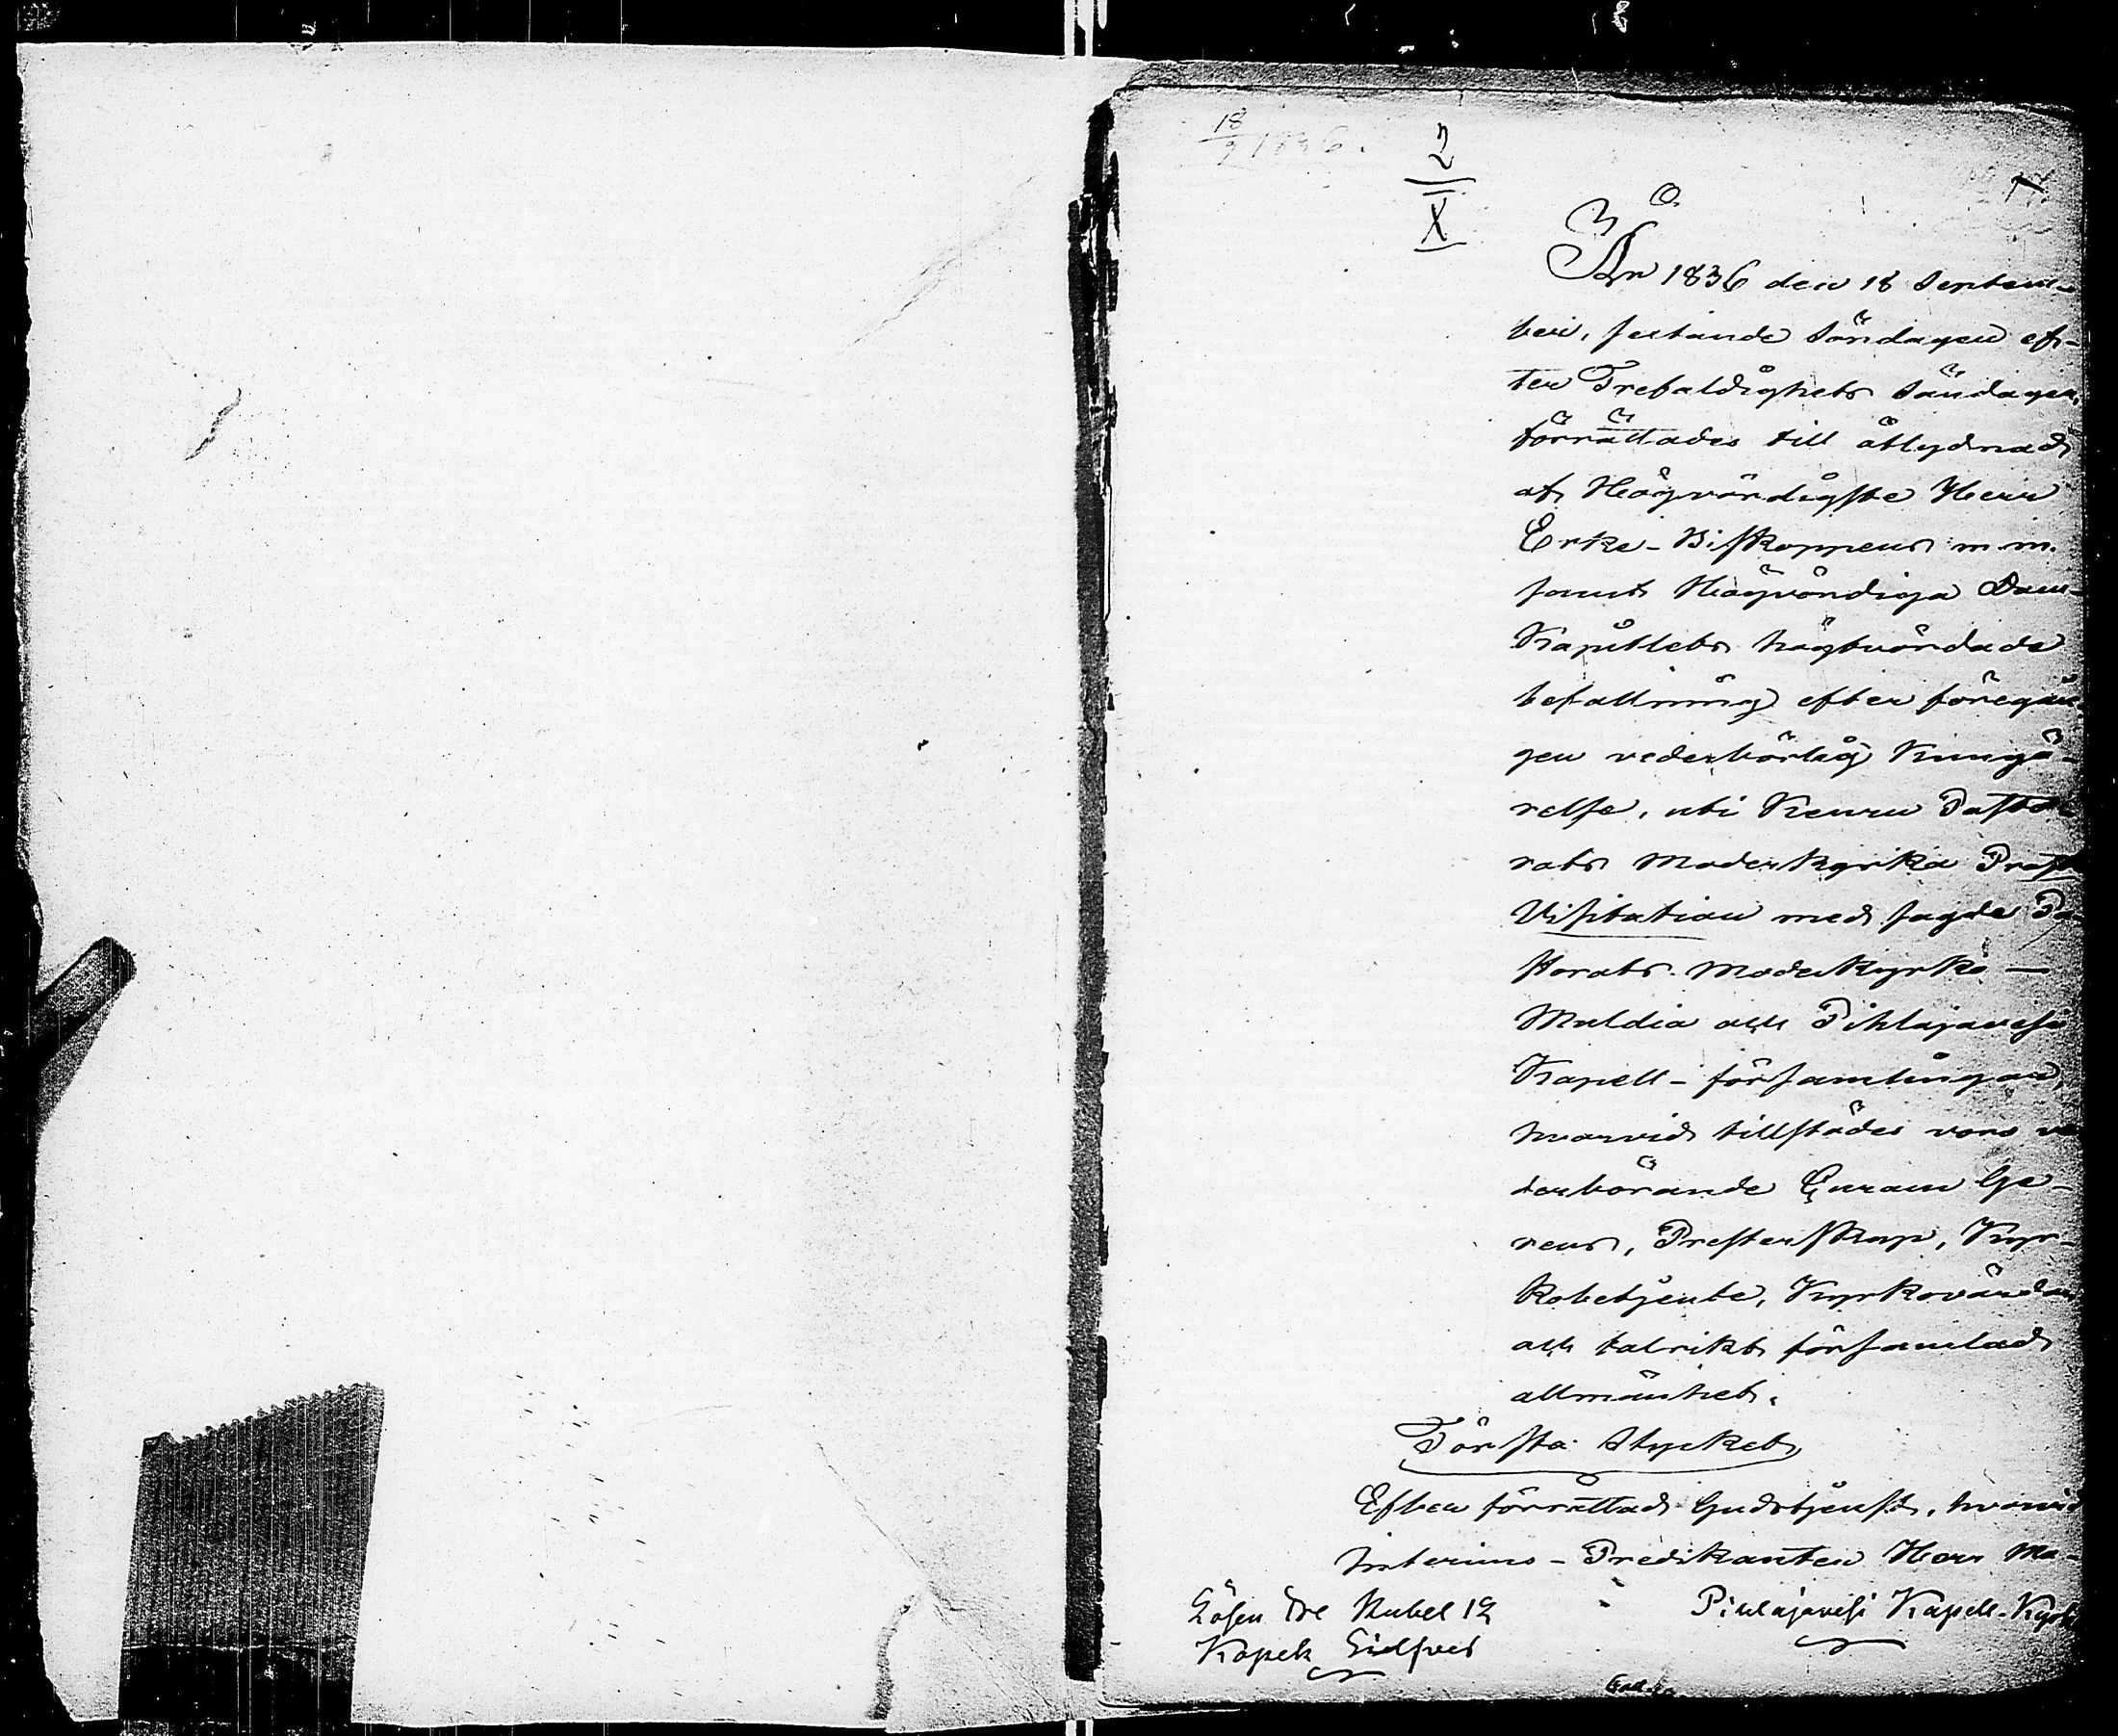 18/9 1836.
2
X
År 1836 den 18 Septem-
ber, sextande Söndagen ef-
ter Trefaldighets Söndagen,
förrättades till åtlydnad
af Högvördigste Herr
Erke-Biskoppens m. m.
samt Högvördiga Dom-
Kapitlets högtvördade
befallning efter föregån-
gen vederbörlig Kungö-
relse, uti Keuru Pasto-
rats Moderkyrka Prosts
Visitation med sagde Pa-
storats Moderkyrko —
Multia och Pihlajavesi
Kapell-församlingar,
hvarvid tillstädes voro ve
derbörande Curam Ge-
rens, Presterskap, Kyr-
kobetjente, Kyrkovärdar
och talrikt församlad
allmänhet.
Första Stycket
Efter förrättad Gudstjenst, hvarvid
Interims-Predikanten Herr Ma-
Lösen Tre Rubel 12
Kopek Silfver
Pihlajavesi Kapell-Kyrk